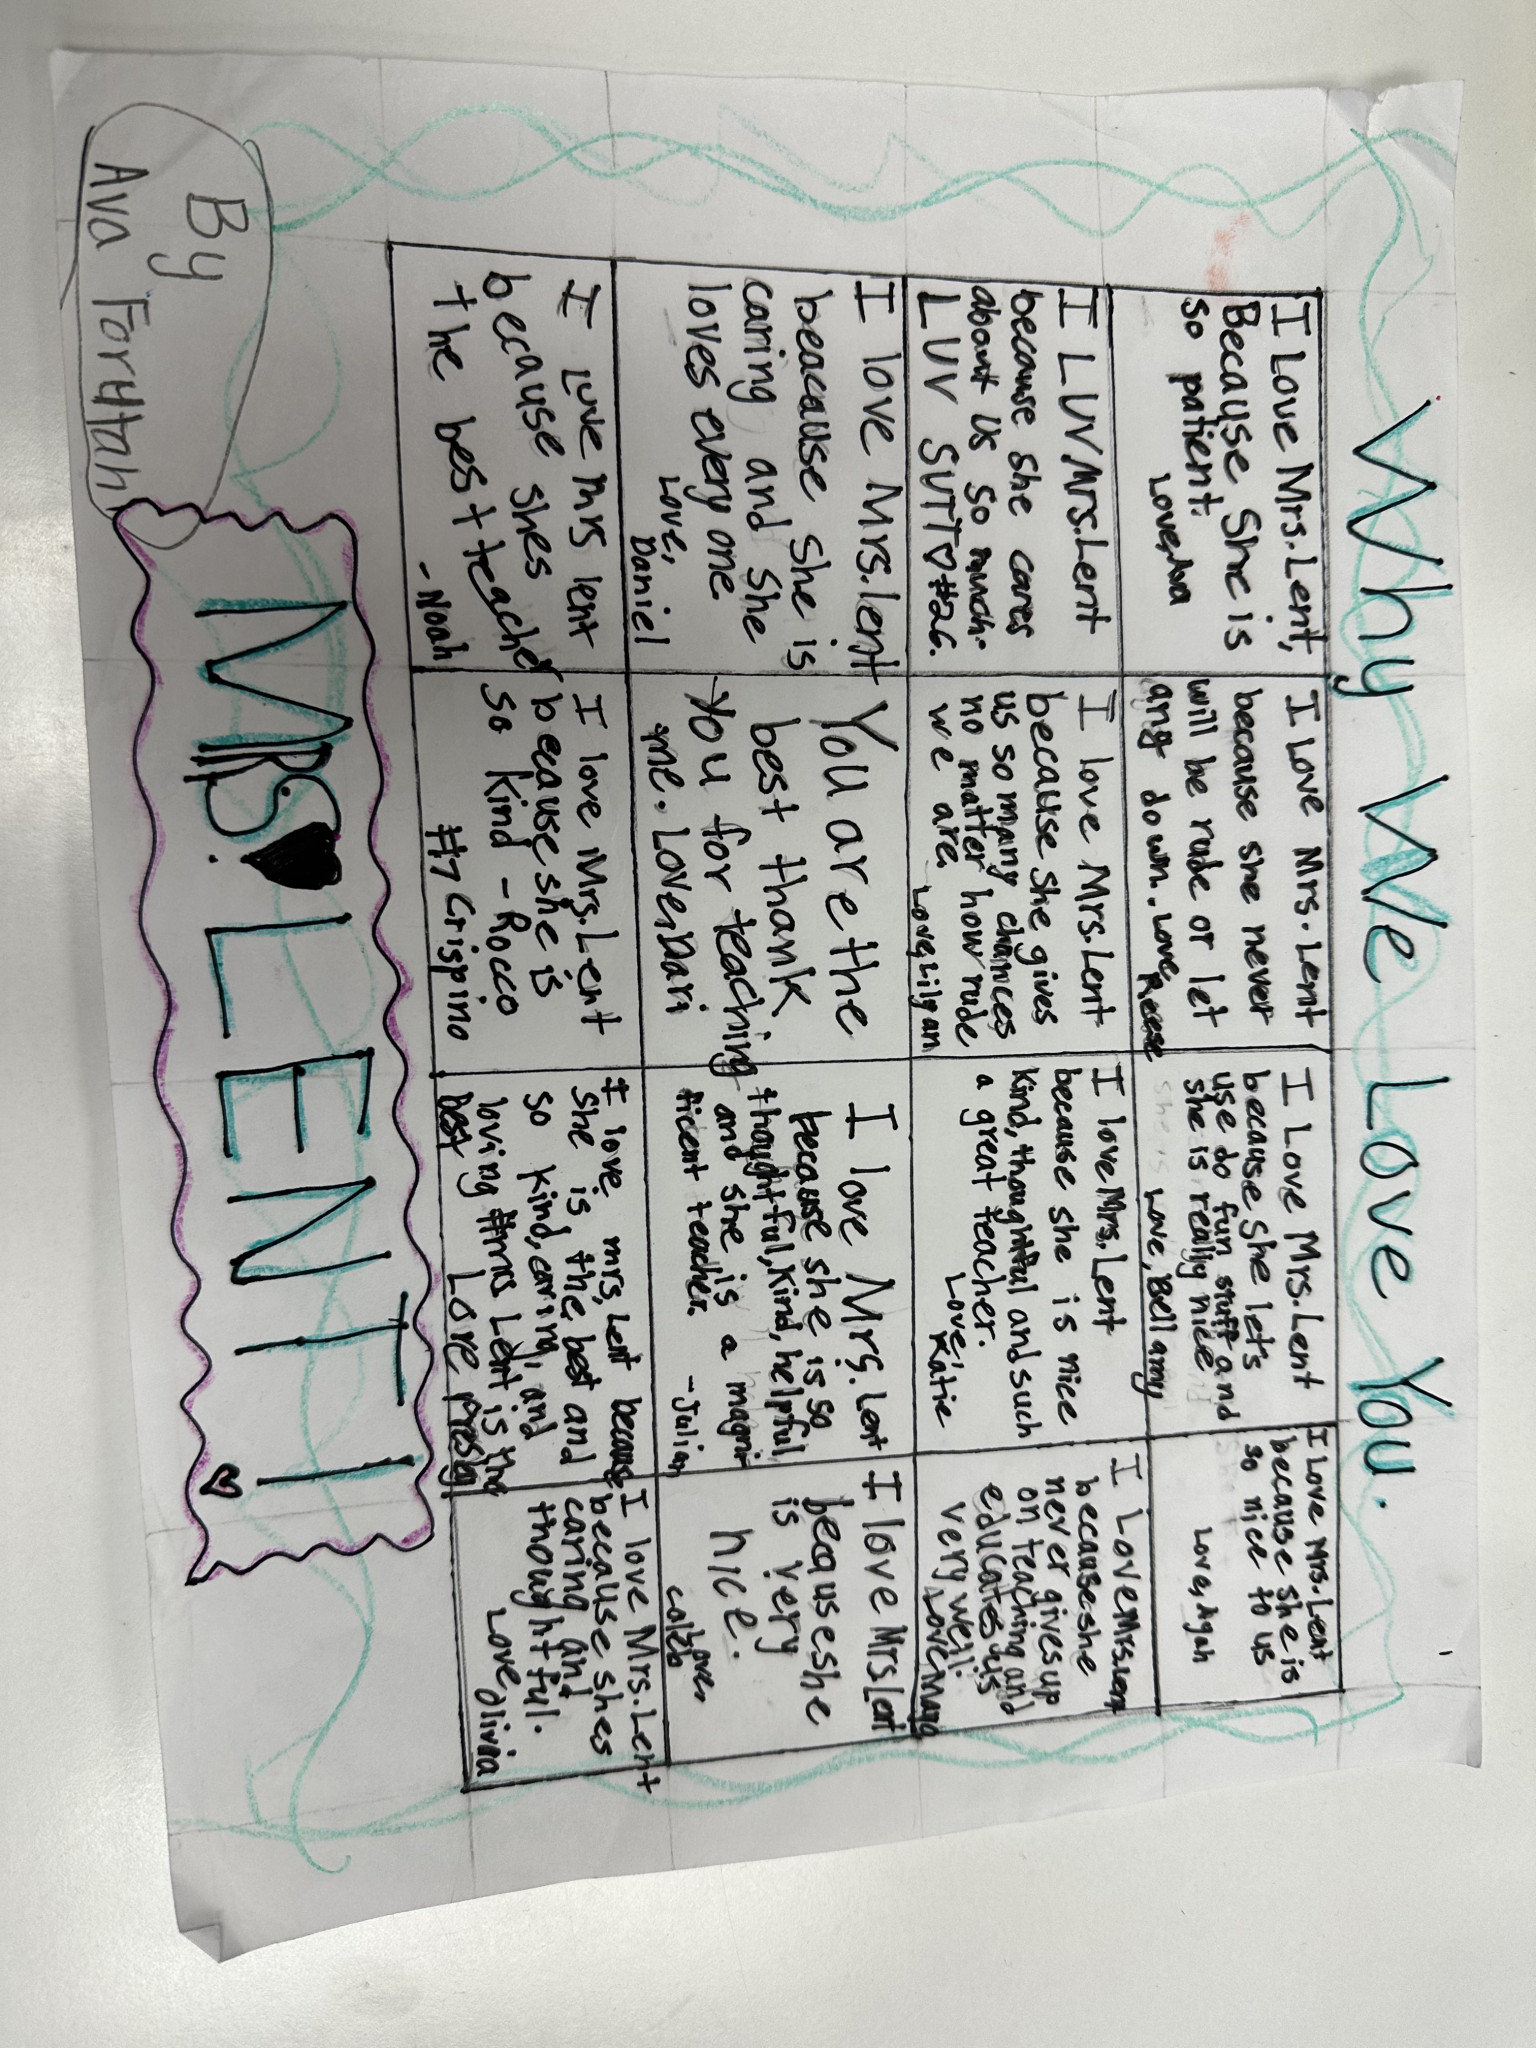 Why We Love You.
I Love Mrs. Lent,
Because She is
so patient.
Love, Ava
I Love Mrs. Lent
because she never
will be rude or let
any down. Love, Reese
I Love Mrs. Lent
because she let's
use do fun stuff and
she is really nice
she is Love, Bellamy
I Love Mrs. Lent
because she is
so nice to us
Love, Ayah
I LUV Mrs. Lent
because she cares
about us so much.
LUV SUTT♡#26.
I love Mrs. Lent
because she gives
us so many chances
no matter how rude
we are. Love, Lilyann
I love Mrs. Lent
because she is nice
Kind, thoughtful and such
a great teacher.
Love, Katie
I Love Mrs. Lent
because she
never gives up
on teaching and
educates us
very well.
Love
I love Mrs. lent
beacause she is
caring and she
loves every one
Love,
Daniel
You are the
best thank
You for teaching
me. Love, Dari
I love Mrs. Lent
because she is so
thoughtful, Kind, helpful
and she is a magni
ficent teacher. -Julian
I love Mrs Lent
because she
is very
nice.
Love,
Caleb
I Luve Mrs lent
because shes
the best teacher
-Noah
I love Mrs. Lent
because she is
so kind -Rocco
#7 Crispino
I love mrs, Lent because
she is the best and
so kind, caring, and
loving #mrs Lent is the
best Love Presley
I love Mrs. Lent
because shes
caring and
thoughtful.
Love Olivia
By
Ava Forytah
MRS. LENT!